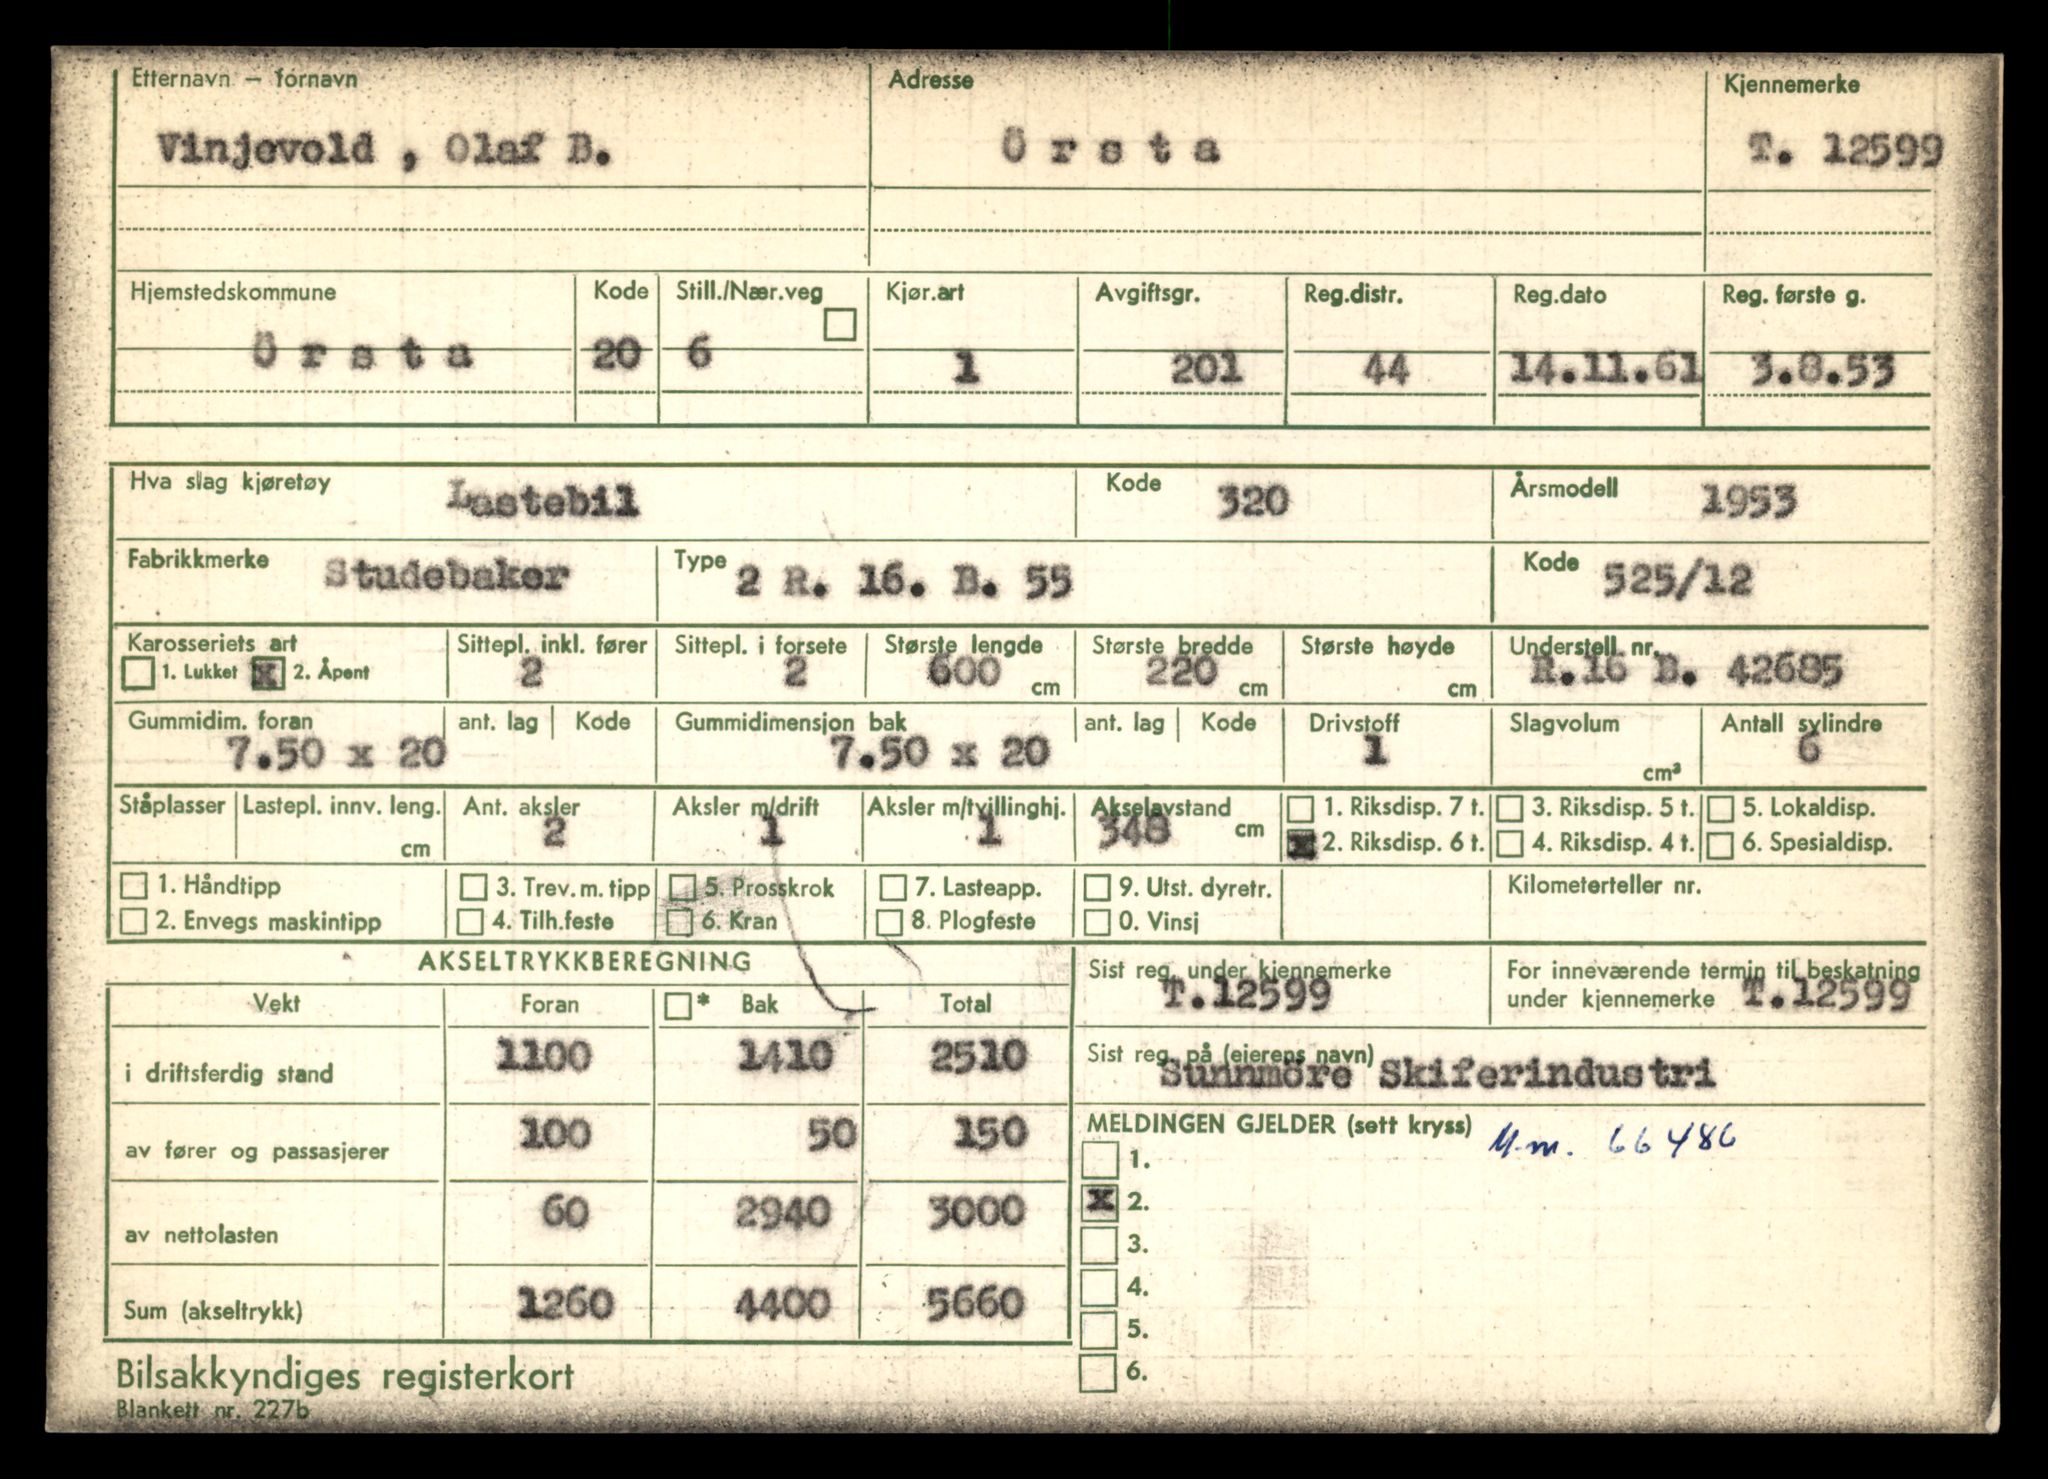 Etternavn – fornavn Adresse Kjennemerke
Vinjevold , Olaf B. Ö r s t a T. 12599
Hjemstedskommune Kode Still./Nær.veg Kjør.art Avgiftsgr. Reg.distr. Reg.dato Reg. første g.
Ö r s t a 20 6 1 201 44 14.11.61 3.8.53
Hva slag kjøretøy Lastebil Kode 320 Årsmodell 1953
Fabrikkmerke Studebaker Type 2 R. 16. B. 55 Kode 525/12
Karosseriets art Sittepl. inkl. fører Sittepl. i forsete Største lengde Største bredde Største høyde Understell. nr.
1. Lukket x 2. Åpent 2 2 600 cm 220 cm cm R.16 B. 42685
Gummidim. foran ant. lag Kode Gummidimensjon bak ant. lag Kode Drivstoff Slagvolum Antall sylindre
7.50 x 20 7.50 x 20 1 cm³ 6
Ståplasser Lastepl. innv. leng. Ant. aksler Aksler m/drift Aksler m/tvillinghj. Akselavstand 1. Riksdisp. 7 t. 3. Riksdisp. 5 t. 5. Lokaldisp.
cm 2 1 1 348 cm x 2. Riksdisp. 6 t. 4. Riksdisp. 4 t. 6. Spesialdisp.
1. Håndtipp 3. Trev. m. tipp 5. Prosskrok 7. Lasteapp. 9. Utst. dyretr. Kilometerteller nr.
2. Envegs maskintipp 4. Tilh.feste 6. Kran 8. Plogfeste 0. Vinsj
AKSELTRYKKBEREGNING
Vekt Foran * Bak Total
i driftsferdig stand 1100 1410 2510
av fører og passasjerer 100 50 150
av nettolasten 60 2940 3000
Sum (akseltrykk) 1260 4400 5660
Sist reg. under kjennemerke T.12599
For inneværende termin til beskatning
under kjennemerke T.12599
Sist reg. på (eierens navn)
Sunnmöre Skiferindustri
MELDINGEN GJELDER (sett kryss) M.m. 66486
1.
x 2.
3.
4.
5.
6.
Bilsakkyndiges registerkort
Blankett nr. 227b